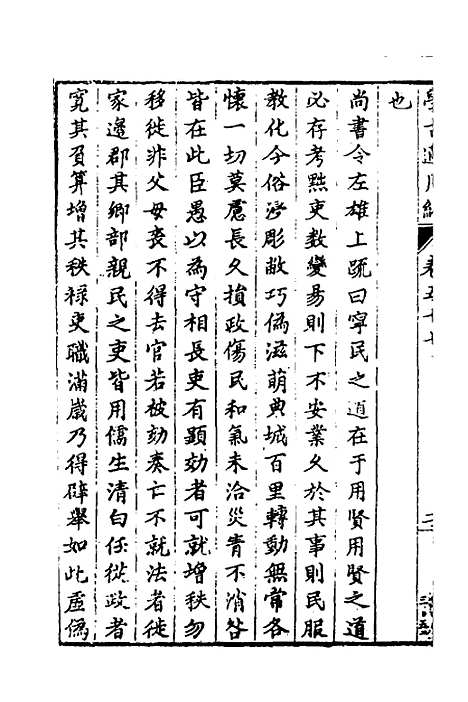 也
尚書令左雄上疏曰寧民之道在于用賢用賢之道
必存考黜吏數變易則下不安業久於其事則民服
教化今俗浸彫敝巧偽滋萌典城百里轉動無常各
懷一切莫慮長久損政傷民和氣未洽災眚不消咎
皆在此臣愚以為守相長吏有顯効者可就增秩勿
移徙非父母喪不得去官若被劾奏亡不就法者徙
家邊郡其鄉部親民之吏皆用儒生清白任從政者
寬其負算增其秩祿吏職滿歲乃得辟舉如此虛偽